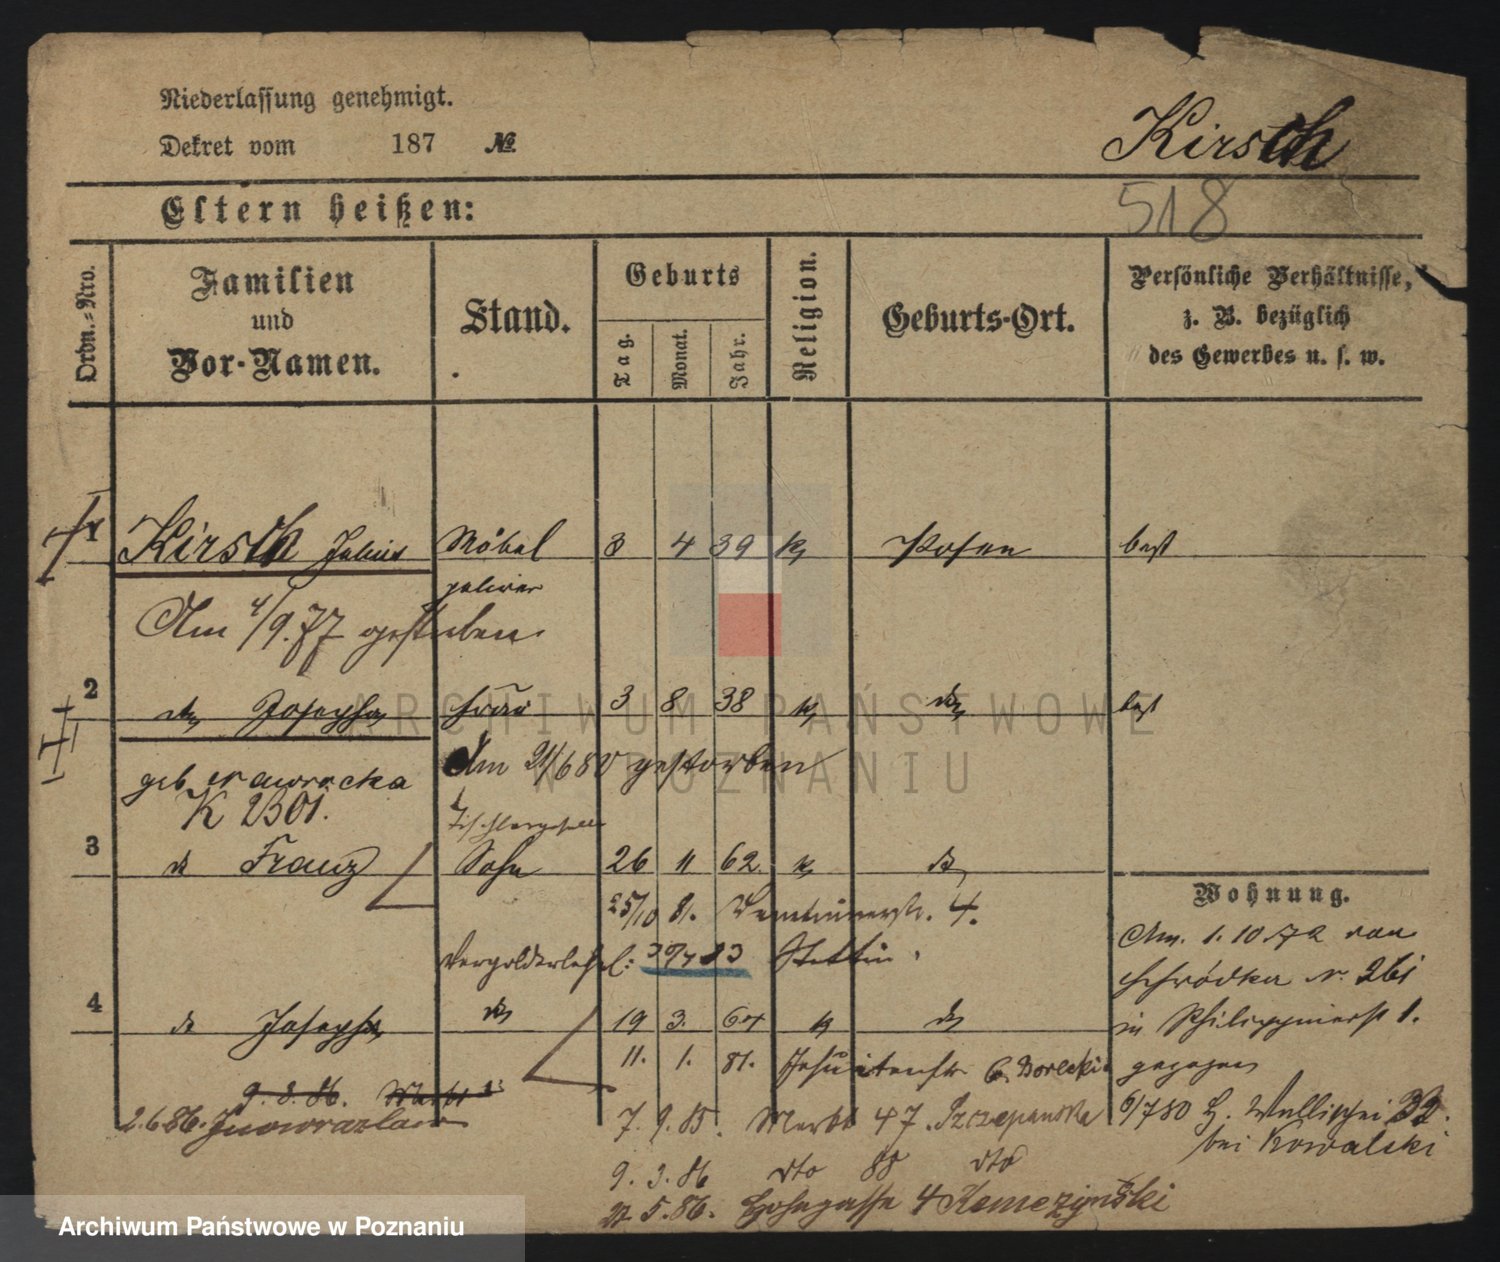 Niederlassung genehmigt.
Dekret vom 187 №
Kirsch
518
Eltern heißen:
Ordn.-Nro.
Familien
und
Vor-Namen.
Stand.
Geburts
Tag.
Monat.
Jahr.
Religion.
Geburts-Ort.
Persönliche Verhältnisse,
z. B. bezüglich
des Gewerbes u. s. w.
1 Kirsch Julius Möbel 3 4 39 k Posen best
polirer
Am 4/9.77 gestorben.
2 do Josepha Frau 3 8 38 k do best
geb. Nawrocka
K 2301.
Am 21/6 80 gestorben
Tischlergeselle
3 do Franz Sohn 26 11 62 k do
25/10 81. 4.
Vergolderlehrl: 30/7 83 Stettin
4 do Josepha do 19 3. 64 k do
11. 1. 81. Jesuitenstr 6. Borecki
9. 3. 86.
2.6 86. Inowrazlaw
7. 9. 85. Markt 47. Szczepanska
9. 3. 86 dto 88 dto
5. 86. Hohegasse 4 Kemczynski
Wohnung.
Am. 1. 10 72 von
Schrodka N. 261
in Philippinerst 1.
gezogen
6/7 80 H. Wallischei 32.
bei Kowalski
ARCHIWUM PAŃSTWOWE
W POZNANIU
Archiwum Państwowe w Poznaniu